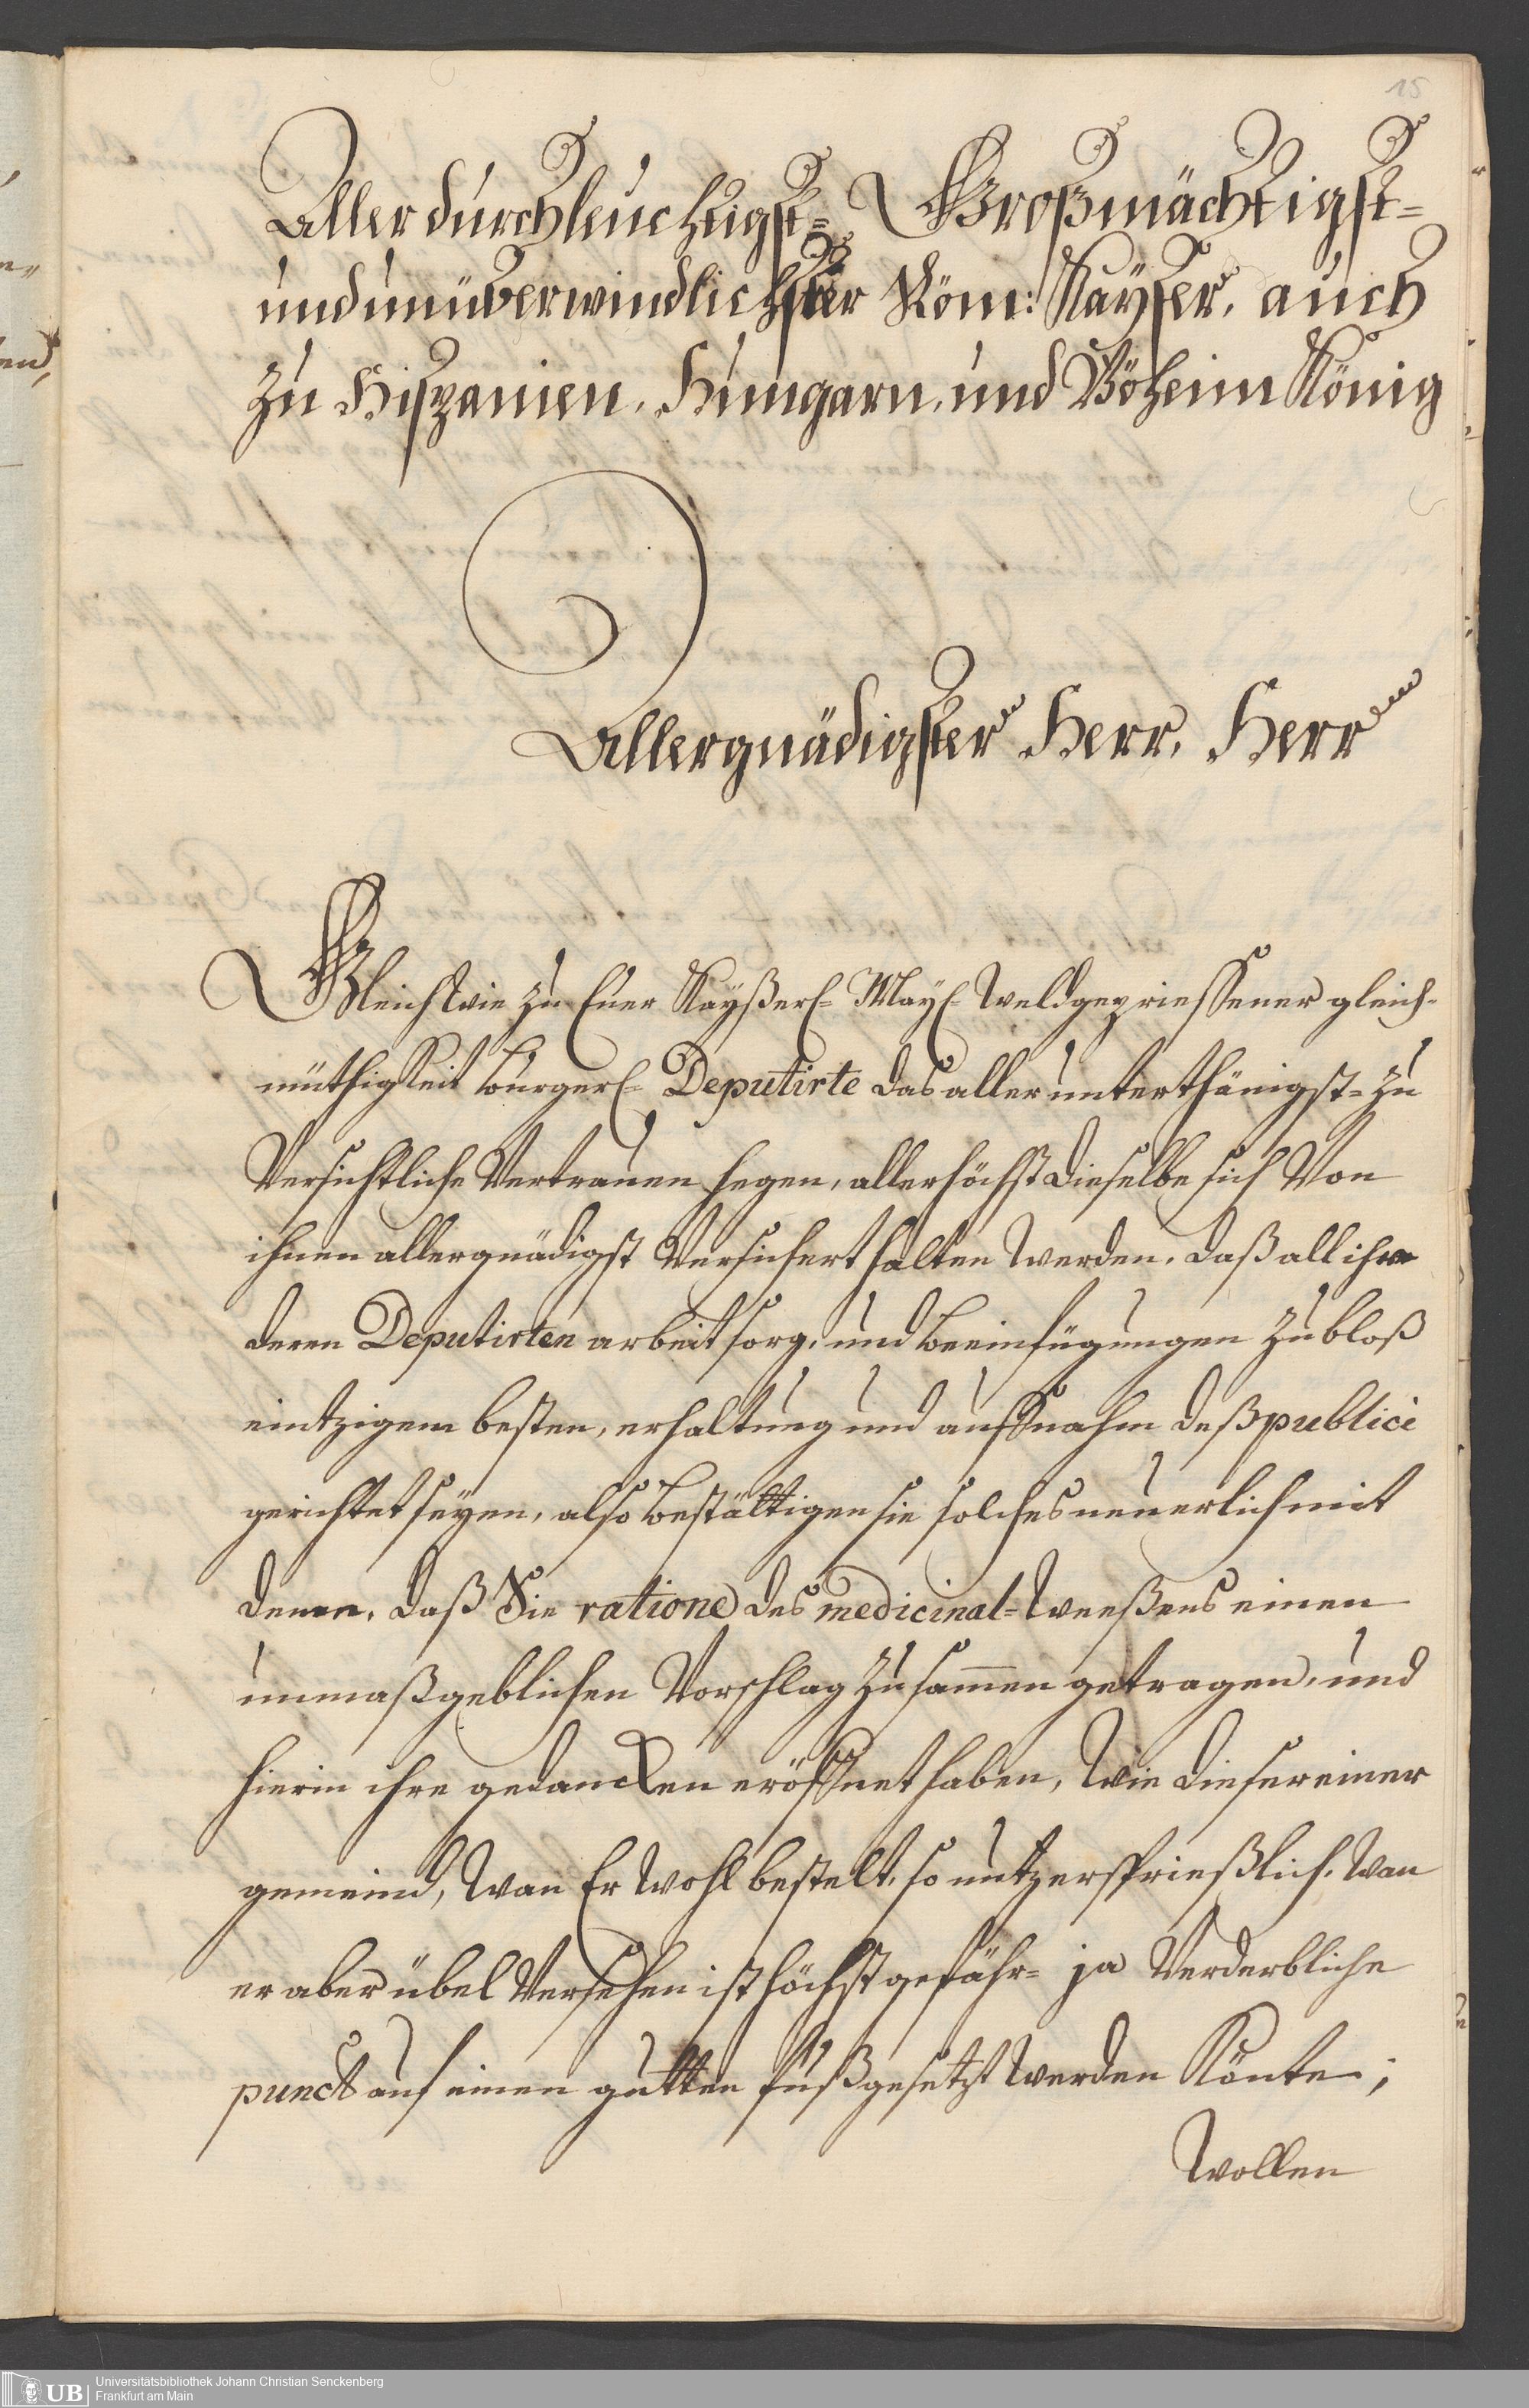 15
Allerdurchleuchtigst= Großmächtigst=
und unüberwindlichster Röm: Kayser, auch
zu Hispanien, Hungarn, und Böheim König
Allergnädigster Herr, Herr
Gleichwie zu Euer Kayßerl= May= weldgepriessener gleich-
müthigkeit burgerl= Deputirte das allerunterthänigst=zu
Versichtliche Vertrauen hegen, allerhöchst dieselbe sich Von
ihnen allergnädigst Versichert halten werden, daß all ihre
deren Deputirten arbeit sorg, und beeinfügungen zu bloß
eintzigem besten, erhaltung und auffnahm deß publici
gerichtet seyen, also bestättigen sie solches neuerlich mit
deme, daß Sie ratione des medicinal=weeßens einen
unmaßgeblichen Vorschlag zusammen getragen, und
hierin ihre gedancken eröffnet haben, wie dieser einer
gemeind, wan Er wohl bestelt, so nutzersprießlich, wan
er aber übel Versehen ist höchst gefähr= ja Verderbliche
punct auf einen gutten fuß gesetzt werden könte;
Wollen
UB
Universitätsbibliothek Johann Christian Senckenberg
Frankfurt am Main